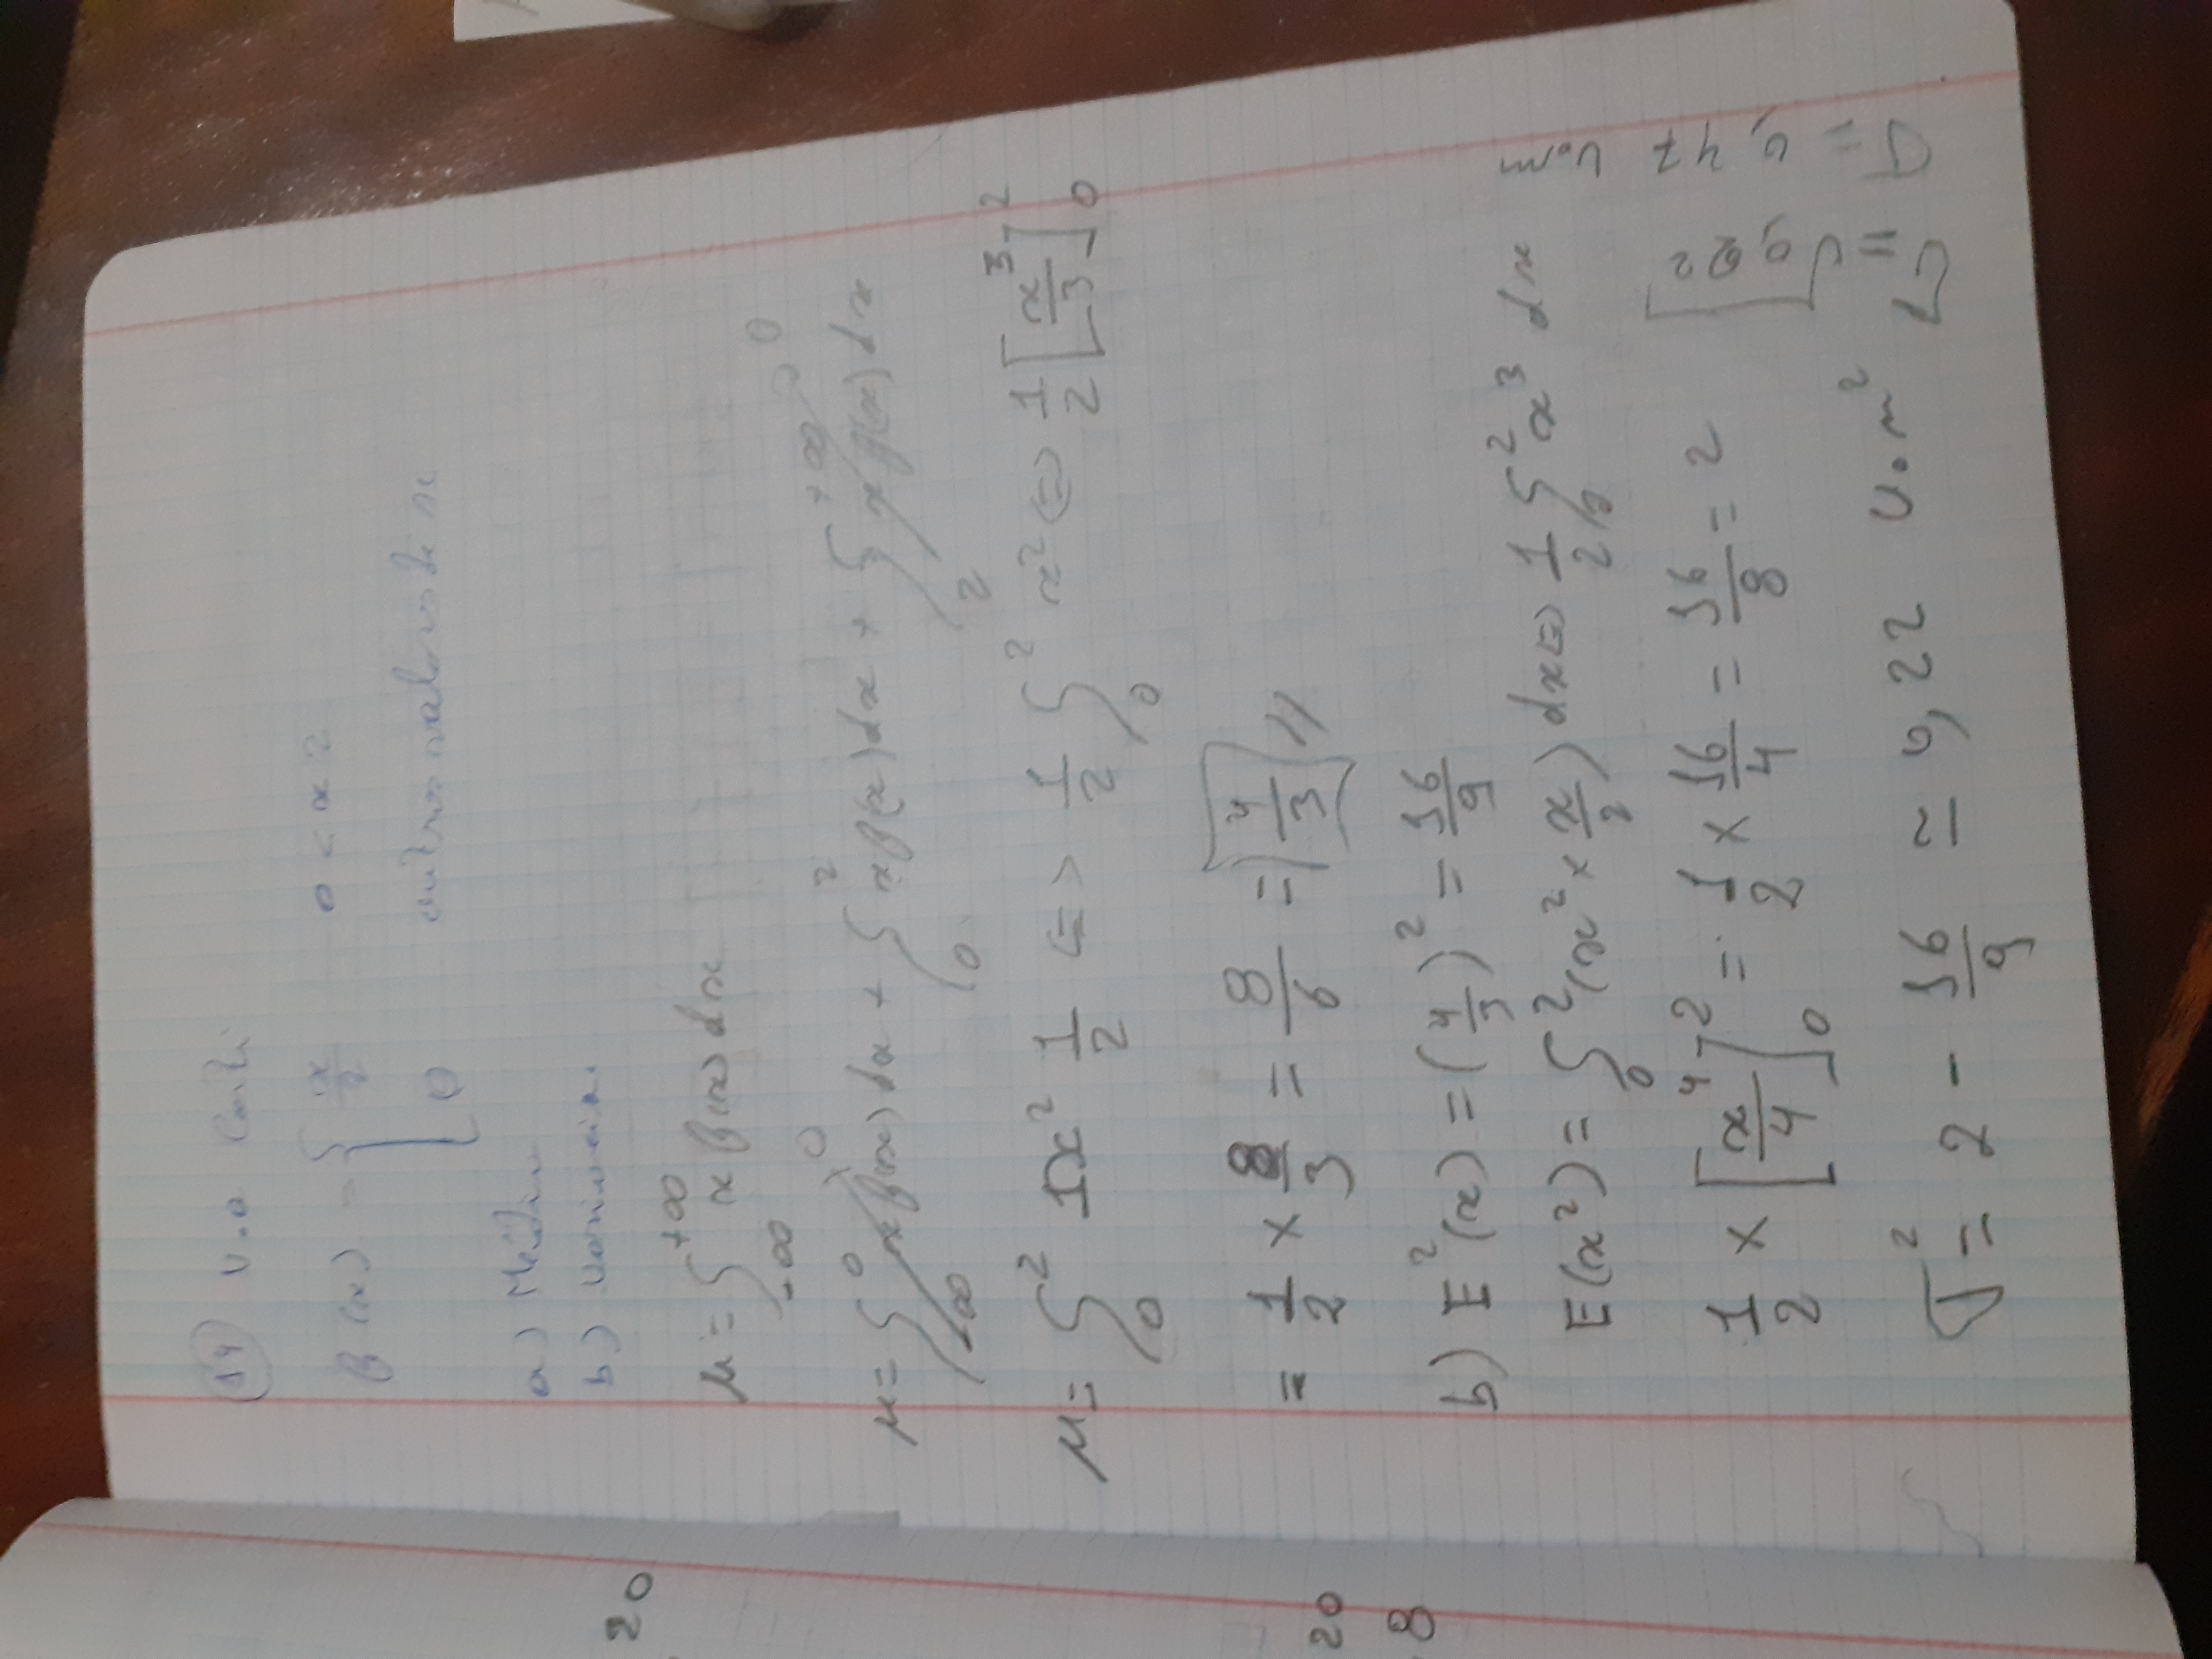 14 V.a Conti
f(x) = { x/2 0 < x 2
0 outros valores de x
a) Média
b) Variancia.
μ = ∫_{-∞}^{+∞} x f(x) dx
μ = ∫_{-∞}^{0} x f(x) dx → 0 + ∫_{0}^{2} x f(x) dx + ∫_{2}^{+∞} x f(x) dx → 0
μ = ∫_{0}^{2} 1x² 1/2 <=> 1/2 ∫_{0}^{2} x² <=> 1/2 [x³/3]_{0}^{2}
= 1/2 × 8/3 = 8/6 = 4/3 //
b) E²(x) = (4/3)² = 16/9
E(x²) = ∫_{0}^{2} (x² × x/2) dx <=> 1/2 ∫_{0}^{2} x³ dx
1/2 × [x⁴/4]_{0}^{2} = 1/2 × 16/4 = 16/8 = 2
σ² = 2 - 16/9 ≃ 0,22 U.m²
σ = √0,22
σ = 0,47 U.m
20
20
8